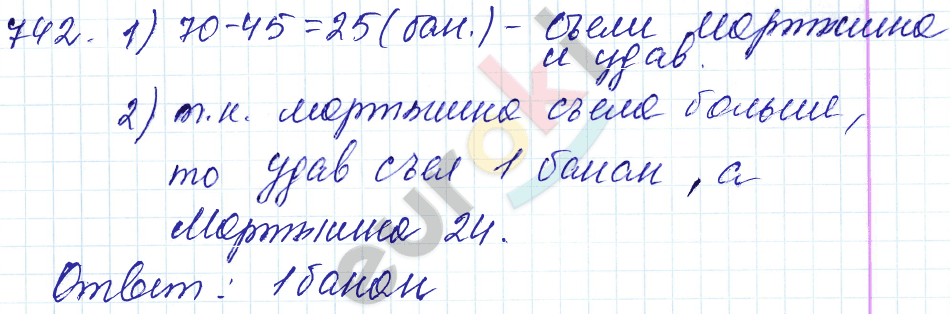 742. 1) 70-45=25(бан.)- съели мартышка
и удав.
2) т.к. мартышка съела больше,
то удав съел 1 банан, а
Мартышка 24.
Ответ: 1 банан
euroki